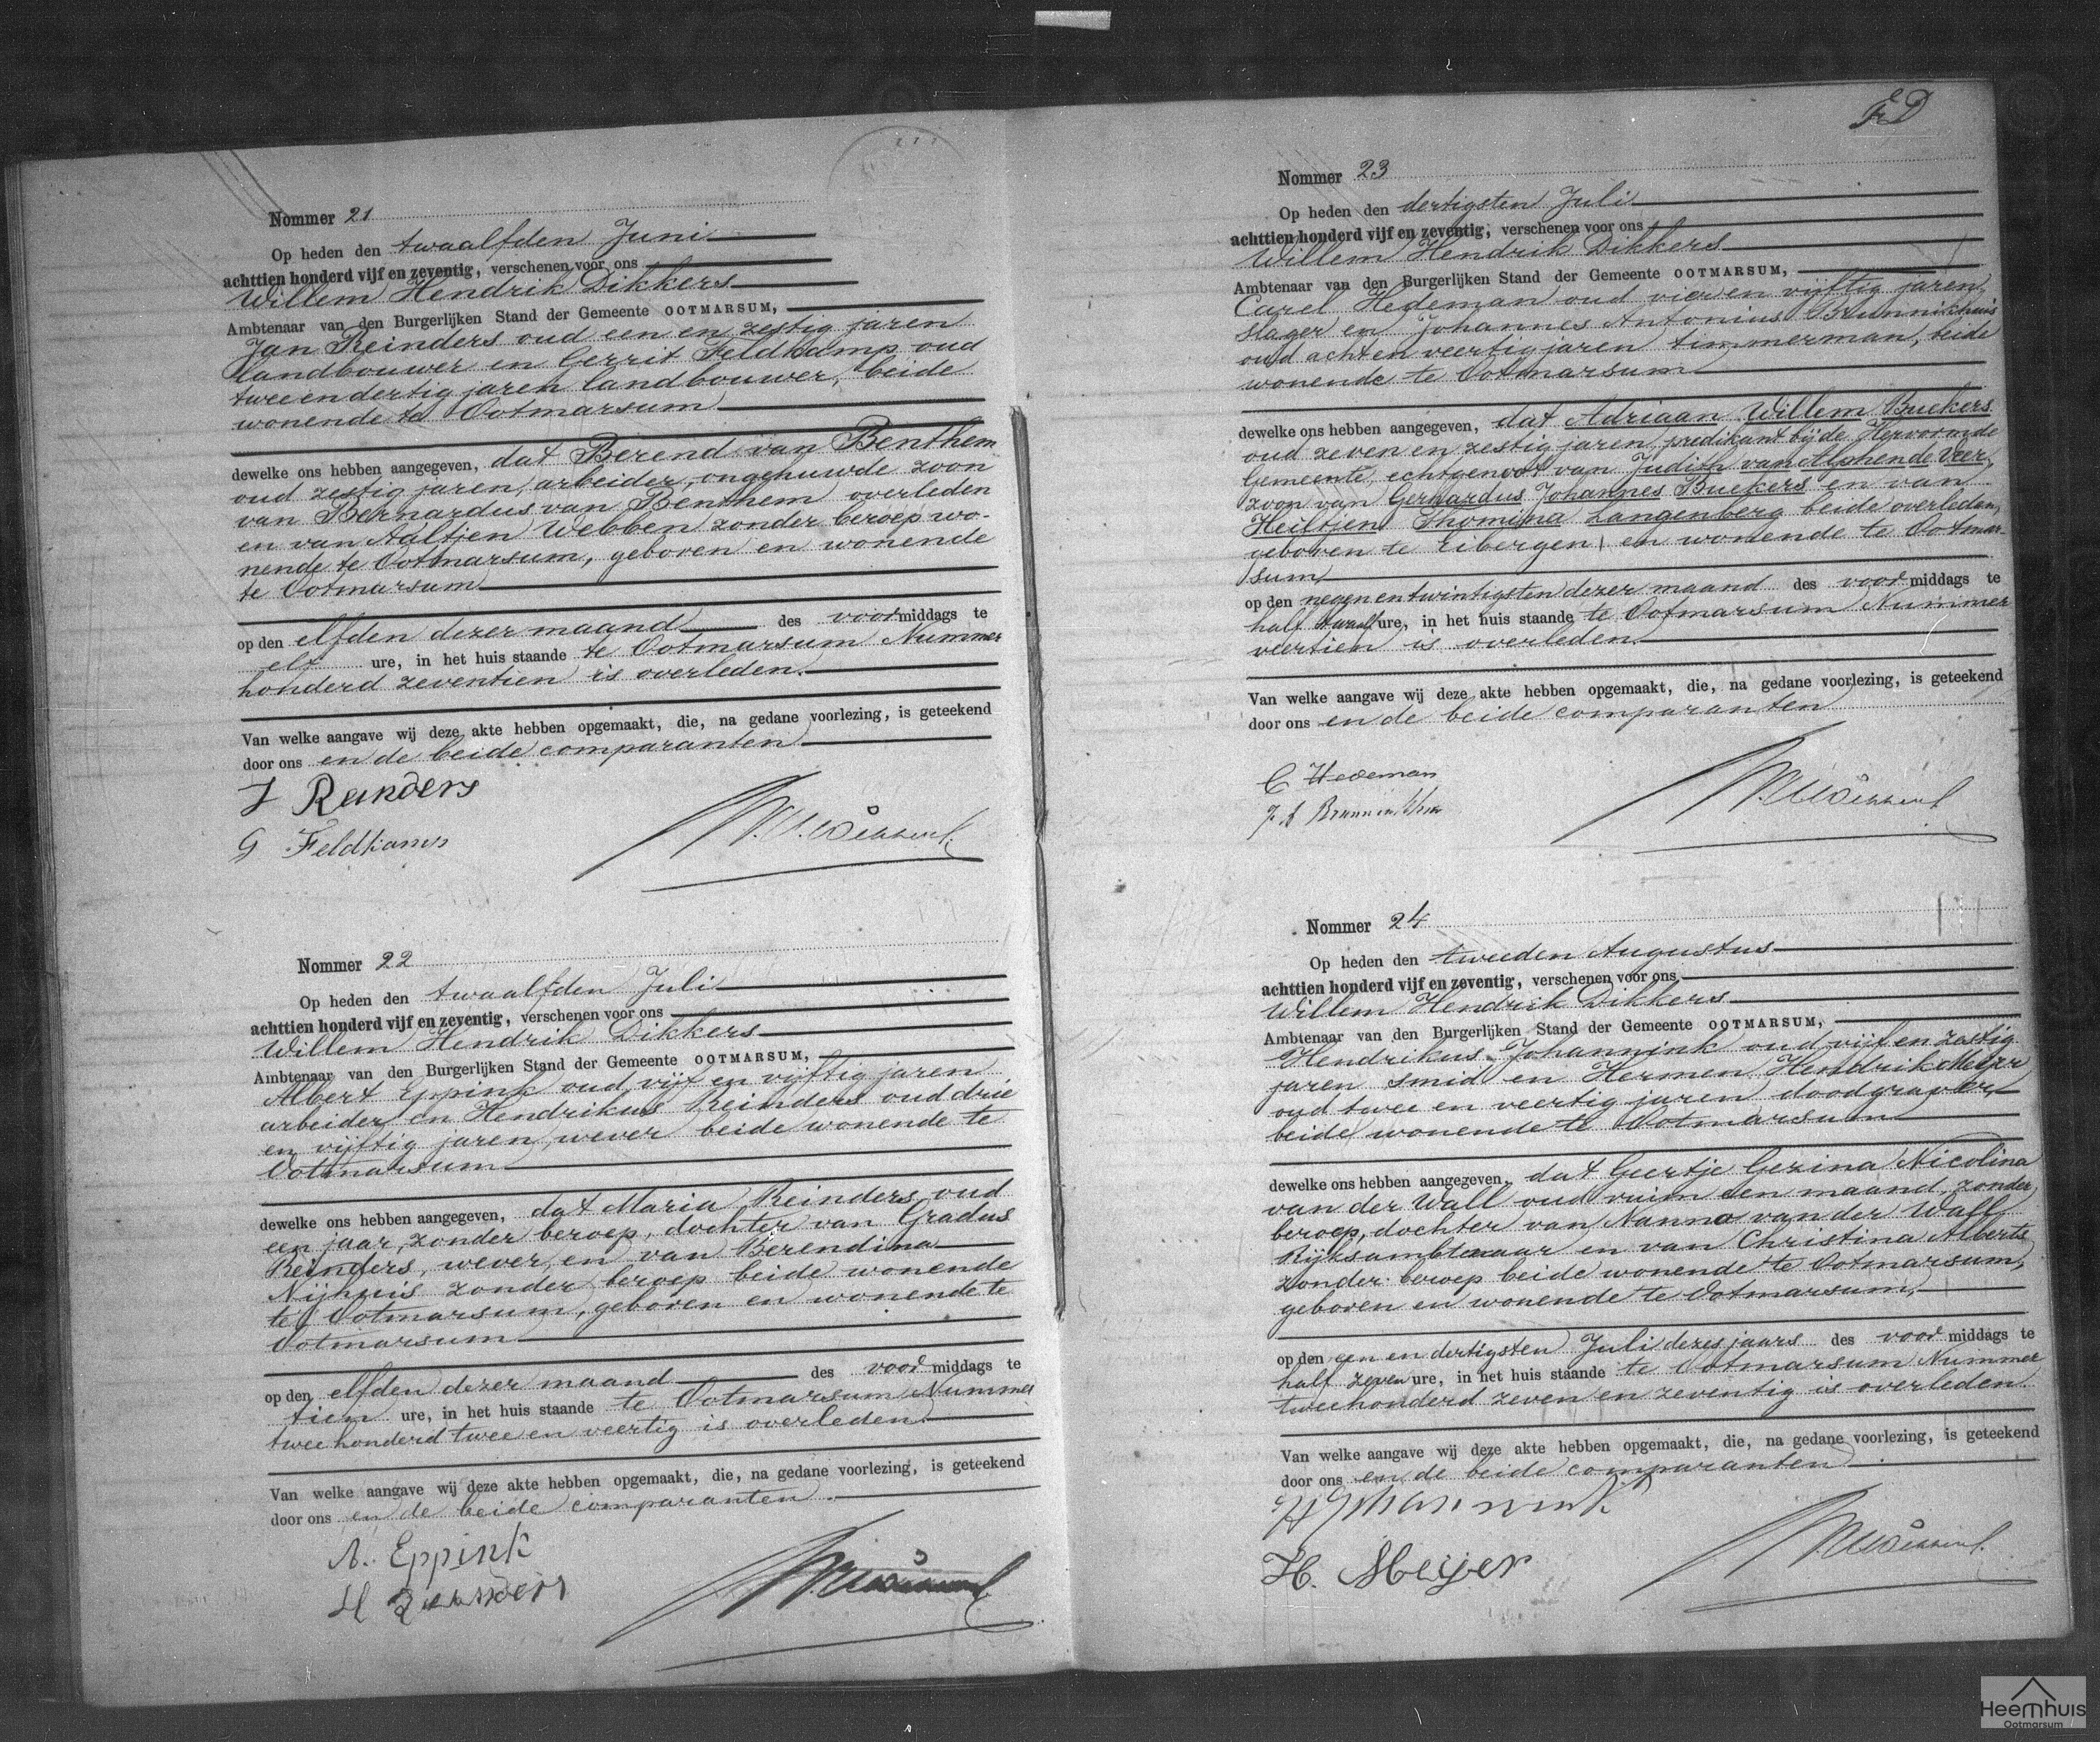 Nommer 21
Op heden den twaalfden Juni
achttien honderd vijf en zeventig, verschenen voor ons
Willem Hendrik Dikkers
Ambtenaar van den Burgerlijken Stand der Gemeente OOTMARSUM,
Jan Reinders oud een en zestig jaren
landbouwer en Gerrit Feldkamp oud
twee en dertig jaren landbouwer, beide
wonende te Ootmarsum
dewelke ons hebben aangegeven, dat Berend van Benthem
oud zestig jaren, arbeider, ongehuwde zoon
van Bernardus van Benthem overleden
en van Aaltjen Webben zonder beroep wo-
nende te Ootmarsum, geboren en wonende
te Ootmarsum
op den elfden dezer maand des voormiddags te
elf ure, in het huis staande te Ootmarsum Nummer
honderd zeventien is overleden.
Van welke aangave wij deze akte hebben opgemaakt, die, na gedane voorlezing, is geteekend
door ons en de beide comparanten
J Reinders
G Feldkamp
Nommer 22
Op heden den twaalfden Juli
achttien honderd vijf en zeventig, verschenen voor ons
Willem Hendrik Dikkers
Ambtenaar van den Burgerlijken Stand der Gemeente OOTMARSUM,
Albert Eppink oud vijf en vijftig jaren
arbeider en Hendrikus Reinders oud drie
en vijftig jaren, wever beide wonende te
Ootmarsum
dewelke ons hebben aangegeven, dat Maria Reinders oud
een jaar, zonder beroep, dochter van Gradus
Reinders, wever, en van Berendina
Nijhuis zonder beroep beide wonende
te Ootmarsum, geboren en wonende te
Ootmarsum
op den elfden dezer maand des voormiddags te
tien ure, in het huis staande te Ootmarsum Nummer
twee honderd twee en veertig is overleden.
Van welke aangave wij deze akte hebben opgemaakt, die, na gedane voorlezing, is geteekend
door ons en de beide comparanten.
A. Eppink
H Reinders
Nommer 23
Op heden den dertigsten Juli
achttien honderd vijf en zeventig, verschenen voor ons
Willem Hendrik Dikkers
Ambtenaar van den Burgerlijken Stand der Gemeente OOTMARSUM,
Carel Hedeman oud vier en vijftig jaren,
slager en Johannes Antonius Brunnikhuis
oud acht en veertig jaren timmerman, beide
wonende te Ootmarsum
dewelke ons hebben aangegeven, dat Adriaan Willem Buekers
oud zeven en zestig jaren, predikant bij de Hervormde
Gemeente, echtgenoot van Judith van Alphen de Veer,
zoon van Gerhardus Johannes Buekers en van
Heiltjen Thomina Langenberg beide overleden,
geboren te Eibergen en wonende te Ootmar-
sum
op den negen en twintigsten dezer maand des voormiddags te
half twaalf ure, in het huis staande te Ootmarsum Nummer
veertien is overleden
Van welke aangave wij deze akte hebben opgemaakt, die, na gedane voorlezing, is geteekend
door ons en de beide comparanten
C Hedeman
Nommer 24
Op heden den tweeden Augustus
achttien honderd vijf en zeventig, verschenen voor ons
Willem Hendrik Dikkers
Ambtenaar van den Burgerlijken Stand der Gemeente OOTMARSUM,
Hendrikus Johannink oud vijf en zestig
jaren smid en Hermen Hendrik Meijer
oud twee en veertig jaren doodgraver,
beide wonende te Ootmarsum
dewelke ons hebben aangegeven, dat Geertje Gezina Nicolina
van der Wall oud ruim een maand, zonder
beroep, dochter van Nanno van der Wall
Rijksambtenaar en van Christina Alberts
zonder beroep beide wonende te Ootmarsum,
geboren en wonende te Ootmarsum,
op den een en dertigsten Juli dezes jaars des voormiddags te
half zeven ure, in het huis staande te Ootmarsum Nummer
tweehonderd zeven en zeventig is overleden.
Van welke aangave wij deze akte hebben opgemaakt, die, na gedane voorlezing, is geteekend
door ons en de beide comparanten
H Johannink
H. Meijer
Heemhuis
Ootmarsum